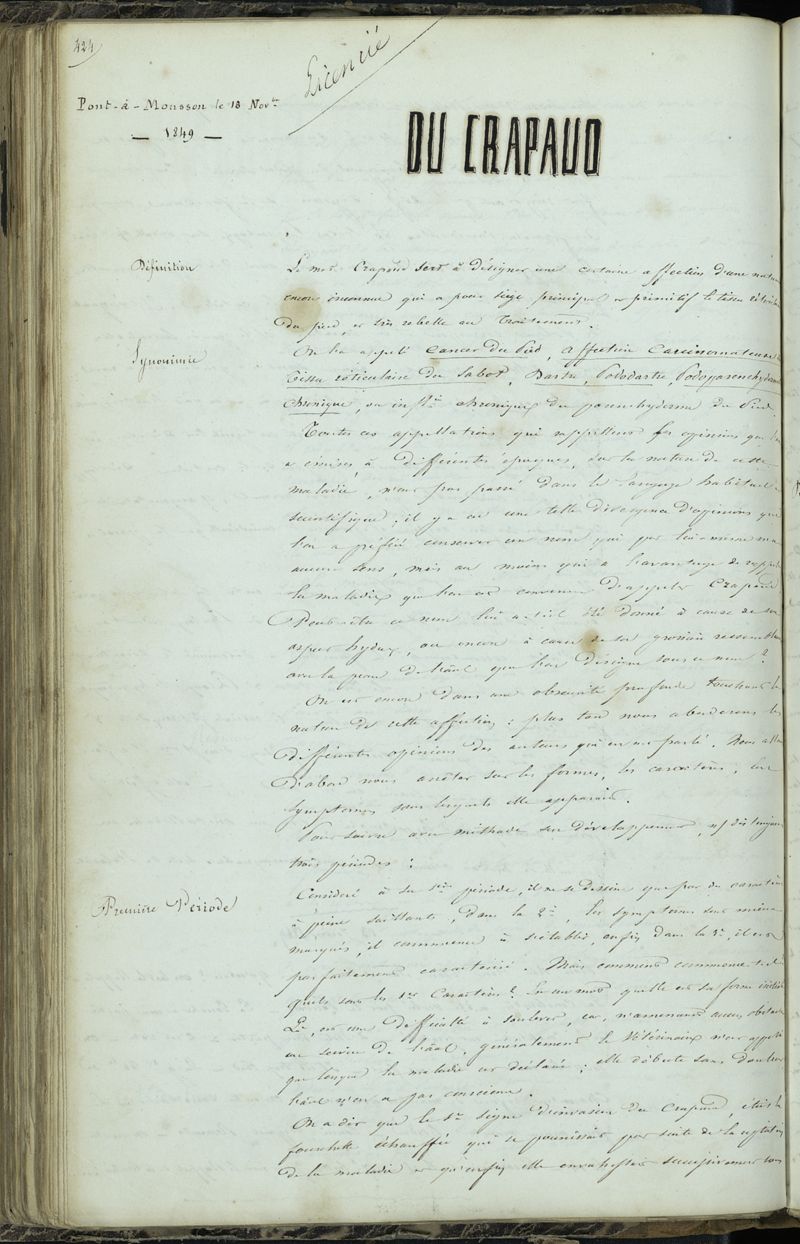 424
Licencié
Pont-à-Mousson le 18 Nov.bre
1849
DU CRAPAUD
Définition
Le mot Crapaud sert à désigner une certaine affection d'une nature
encore inconnue qui a pour siège principal et primitif le tissu réticulaire
du pied, et très rebelle au traitement.
Synonimie
On l'a appelé Cancer du Pied, affection Carcinomateuse du
tissu réticulaire du Sabot, Dartre, Pododartre, Podoparenchydermite
Chronique, ou inf.on chronique du parenchyderme du Pied.
Toutes ces appellations qui rappellent les opinions que l'on
a émises, à différentes époques, sur la nature de cette
maladie, n'ont pas passé dans le langage habituel
scientifique, il y a eu une telle divergence d'opinions que
l'on a préféré conserver un nom qui par lui-même n'a
aucun sens, mais au moins qui a l'avantage de rappeler
la maladie que l'on est convenu d'appeler Crapaud
Peut-être ce nom lui a-t-il été donné à cause de son
aspect hydeux, ou encore à cause de sa grossière ressemblance
avec la peau de l'anal que l'on désigne sous ce nom ?
On est encore dans une obscurité profonde touchant la
nature de cette affection : plus tard nous aborderons les
différentes opinions des auteurs qui en ont parlé. Nous allons
d'abord nous arrêter sur les formes, les caractères, les
symptomes sous lesquels elle apparait.
Pour suivre avec méthode son développement, ns distinguons
trois périodes :
Première Période
Considéré à sa 1ère période, il ne se dessine que par des caractères
à peine saillants, dans la 2e, les symptomes sont mieux
marqués, il commence à s'établir, enfin dans la 3e, il est
parfaitement caractérisé. Mais comment commence-t-il
quels sont les 1ers Caractères ? En un mot quelle est sa forme initiale
Là, est une difficulté à soulever, car, n'amenant aucun obstacle
au service de l'anal, généralement le Vétérinaire n'est appelé
que lorsque la maladie est déclarée ; elle débute sans douleur
l'anal n'en a pas conscience.
On a dit que le 1er signe d'invasion du Crapaud, était la
fourchette échauffée qui se pourrissait par suite de la
de la maladie et qu'enfin elle envahissait successivement tous